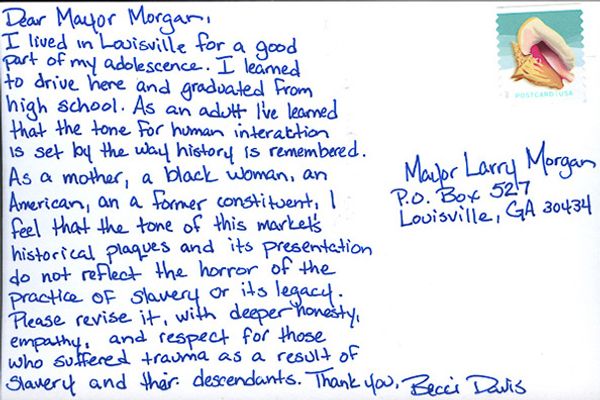 Dear Mayor Morgan,
I lived in Louisville for a good
part of my adolescence. I learned
to drive here and graduated from
high school. As an adult I've learned
that the tone for human interaction
is set by the way history is remembered.
As a mother, a black woman, an
American, an a former constituent, I
feel that the tone of this market's
historical plaques and its presentation
do not reflect the horror of the
practice of slavery or its legacy.
Please revise it, with deeper honesty,
empathy, and respect for those
who suffered trauma as a result of
slavery and their descendants. Thank you, Becci Davis
POSTCARD USA
Mayor Larry Morgan
P.O. Box 527
Louisville, GA 30434